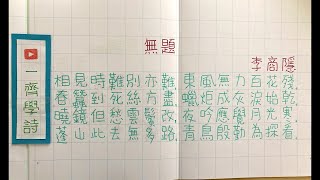 一齊學詩
無題
李商隱
相見時難別亦難,東風無力百花殘.
春蠶到死絲方盡,蠟炬成灰淚始乾.
曉鏡但愁雲鬢改,夜吟應覺月光寒.
蓬山此去無多路,青鳥殷勤為探看.